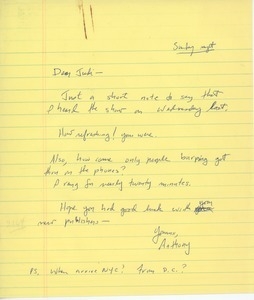 Sunday night
Dear Judi —
Just a short note to say that
I heard the show on Wednesday last.
How refreshing! you were.
Also, how come only people burping got
thru on the phones?
I rang for nearly twenty minutes.
Hope you had good luck with your
new publishers —
Yours,
Anthony
P.S. When arrive NYC? from D.C.?